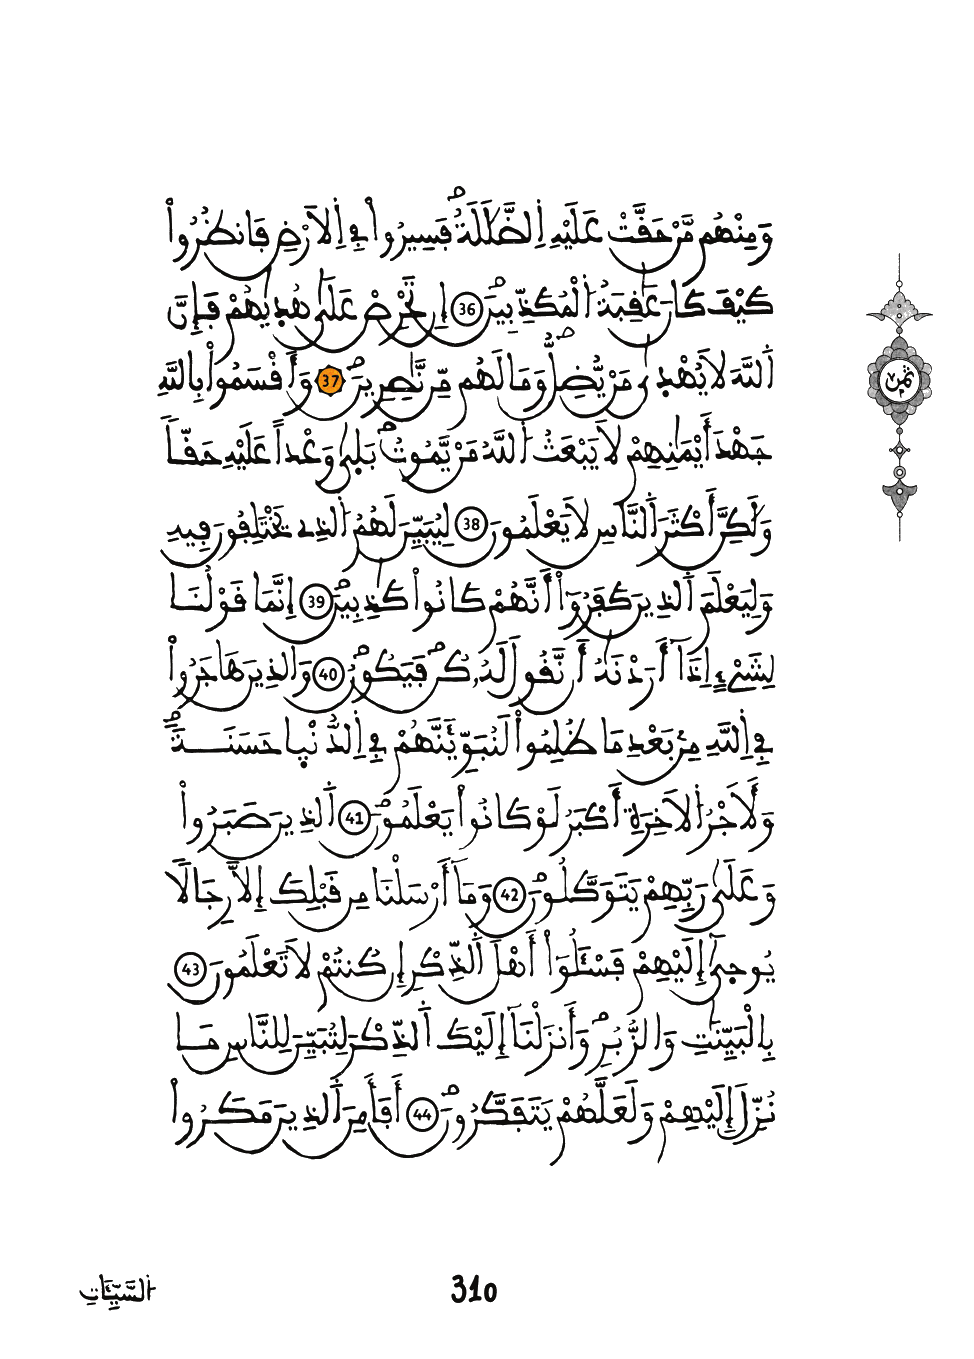 وَمِنْهُم مَّنْ حَقَّتْ عَلَيْهِ اِ۬لضَّلَٰلَةُۖ فَسِيرُواْ فِے اِ۬لَارْضِ فَانظُرُواْ
كَيْفَ كَانَ عَٰقِبَةُ اُ۬لْمُكَذِّبِينَۖ 36 إِن تَحْرِصْ عَلَىٰ هُدٜيٰهُمْ فَإِنَّ
اَ۬للَّهَ لَا يُهْدٜيٰ مَنْ يُّضِلُّۖ وَمَا لَهُم مِّن نَّٰصِرِينَۖ 37 وَأَقْسَمُواْ بِاللَّهِ
جَهْدَ أَيْمَٰنِهِمْ لَا يَبْعَثُ اُ۬للَّهُ مَنْ يَّمُوتُۖ بَل۪يٰ وَعْداً عَلَيْهِ حَقّاٗ
وَلَٰكِنَّ أَكْثَرَ اَ۬لنَّاسِ لَا يَعْلَمُونَ 38 لِيُبَيِّنَ لَهُمُ اُ۬لذِے يَخْتَلِفُونَ فِيهِ
وَلِيَعْلَمَ اَ۬لذِينَ كَفَرُوٓاْ أَنَّهُمْ كَانُواْ كَٰذِبِينَۖ 39 إِنَّمَا قَوْلُنَا
لِشَےْءٍ اِذَآ أَرَدْنَٰهُ أَن نَّقُولَ لَهُۥ كُن فَيَكُونُۖ 40 وَالذِينَ هَاجَرُواْ
فِے اِ۬للَّهِ مِنۢ بَعْدِ مَا ظُلِمُواْ لَنُبَوِّئَنَّهُمْ فِے اِ۬لدُّنْي۪ا حَسَنَةٗۖ
وَلَأَجْرُ اُ۬لَاخِرَةِ أَكْبَرُ لَوْ كَانُواْ يَعْلَمُونَۖ 41 اَ۬لذِينَ صَبَرُواْ
وَعَلَىٰ رَبِّهِمْ يَتَوَكَّلُونَۖ 42 وَمَآ أَرْسَلْنَا مِن قَبْلِكَ إِلَّا رِجَالاٗ
يُوح۪يٰٓ إِلَيْهِمْ فَسْـَٔلُوٓاْ أَهْلَ اَ۬لذِّكْرِ إِن كُنتُمْ لَا تَعْلَمُونَ 43
بِالْبَيِّنَٰتِ وَالزُّبُرِۖ وَأَنزَلْنَآ إِلَيْكَ اَ۬لذِّكْرَ لِتُبَيِّنَ لِلنَّاسِ مَا
نُزِّلَ إِلَيْهِمْ وَلَعَلَّهُمْ يَتَفَكَّرُونَۖ 44 أَفَأَمِنَ اَ۬لذِينَ مَكَرُواْ
ثمن
اَ۬لسَّيِّـَٔاتِ
310